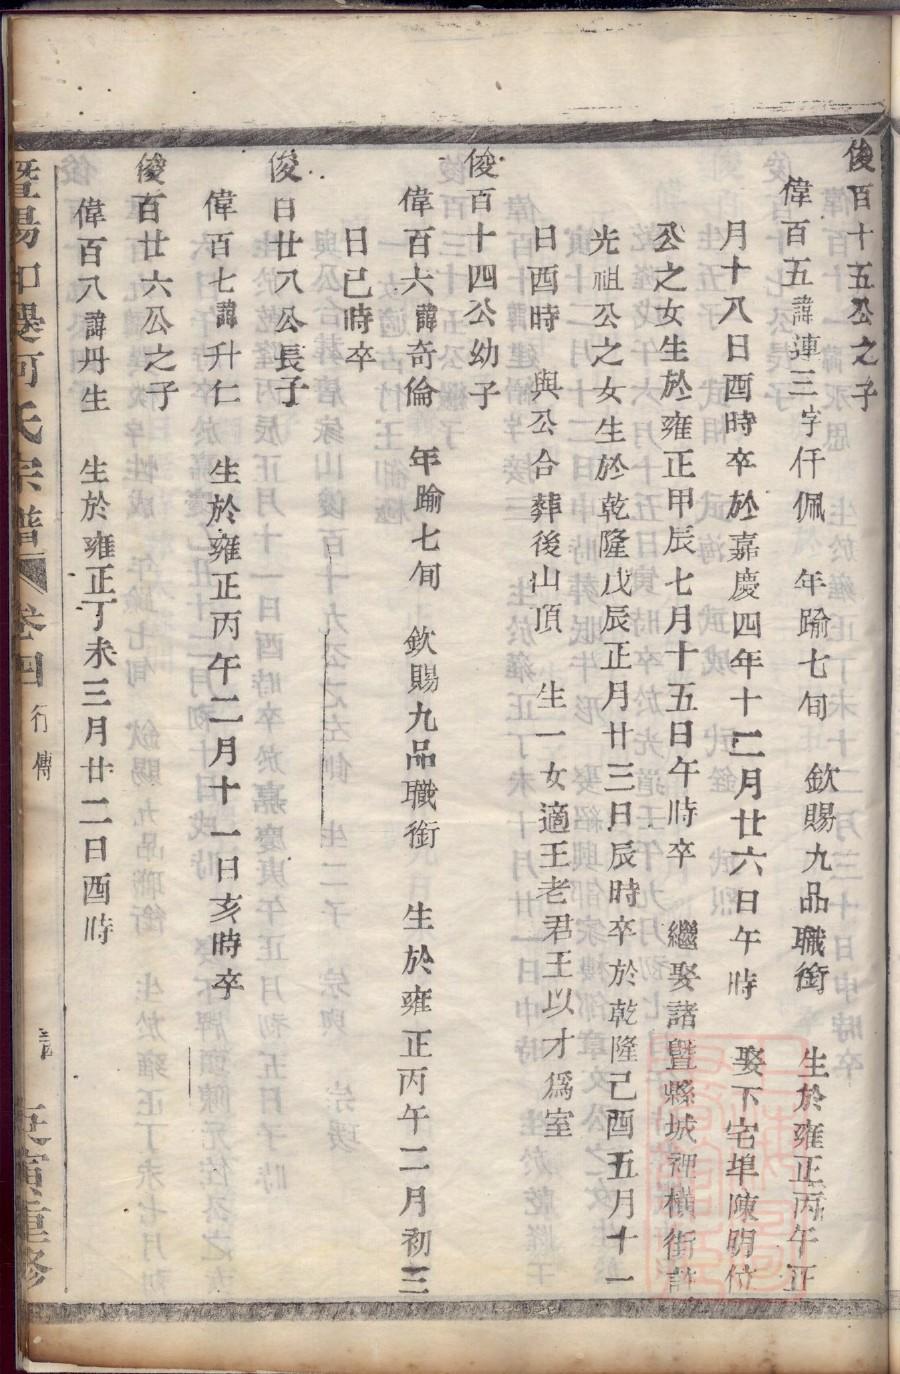 俊百十五公之子
偉百五諱連三字仟佩 年踰七旬 欽賜九品職銜 生於雍正丙午正
月十八日酉時卒於嘉慶四年十二月廿六日午時 娶下宅埠陳明位
公之女生於雍正甲辰七月十五日午時卒 繼娶諸曁縣城裡橫街許
光祖公之女生於乾隆戊辰正月廿三日辰時卒於乾隆己酉五月十一
日酉時 與公合葬後山頂 生一女適王老君王以才爲室
俊百十四公幼子
偉百六諱奇倫 年踰七旬 欽賜九品職銜 生於雍正丙午二月初三
日巳時卒
俊百廿八公長子
偉百七諱升仁 生於雍正丙午二月十一日亥時卒
俊百廿六公之子
偉百八諱丹生 生於雍正丁未三月廿二日酉時
曁陽 何氏宗譜 卷四 行傳 寅重修